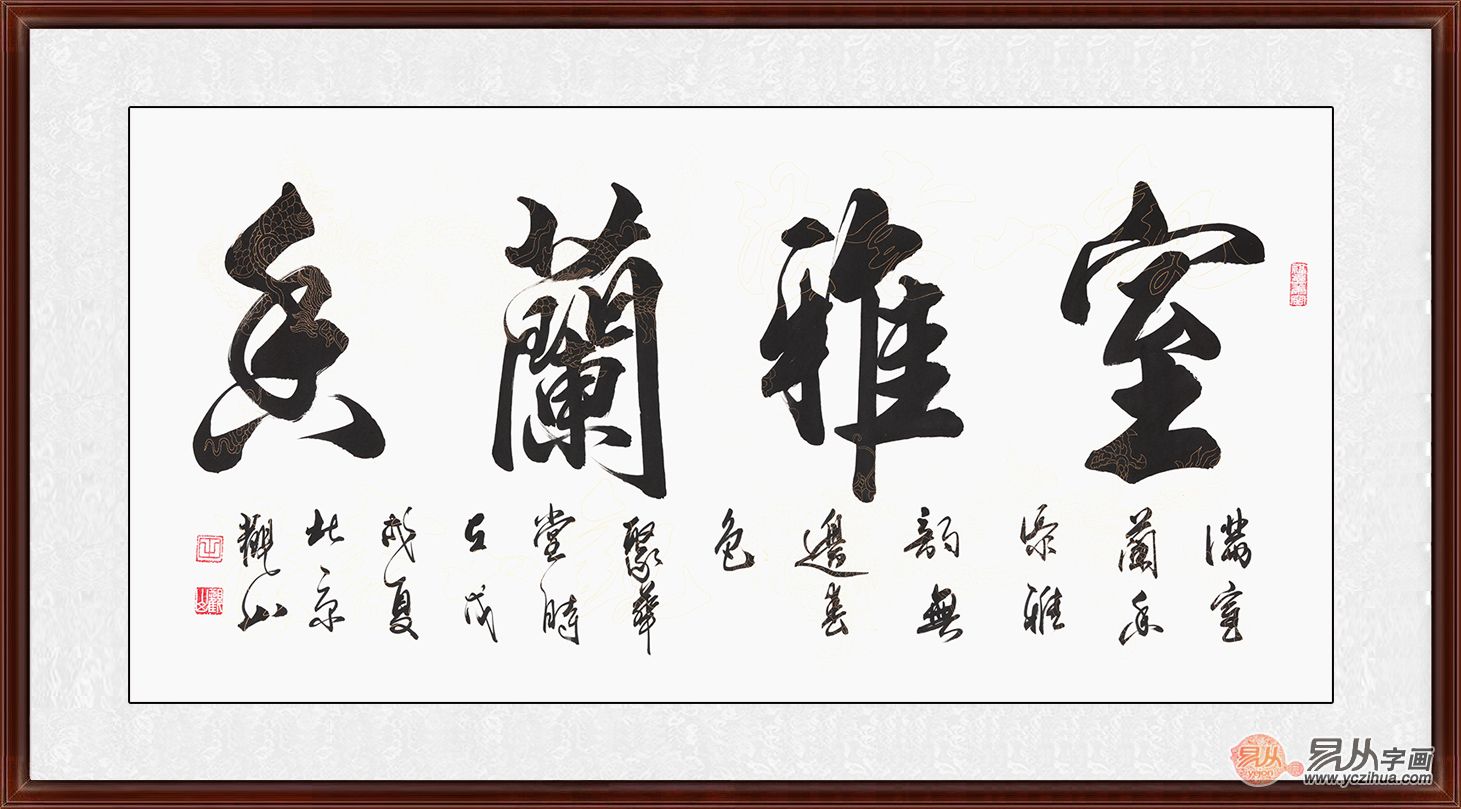 室雅蘭香
滿室
蘭香
添雅
韻無
邊春
色
聚華
堂時
在戊
戌夏
北京
觀山
易从
yigon
易从字画
www.yczihua.com